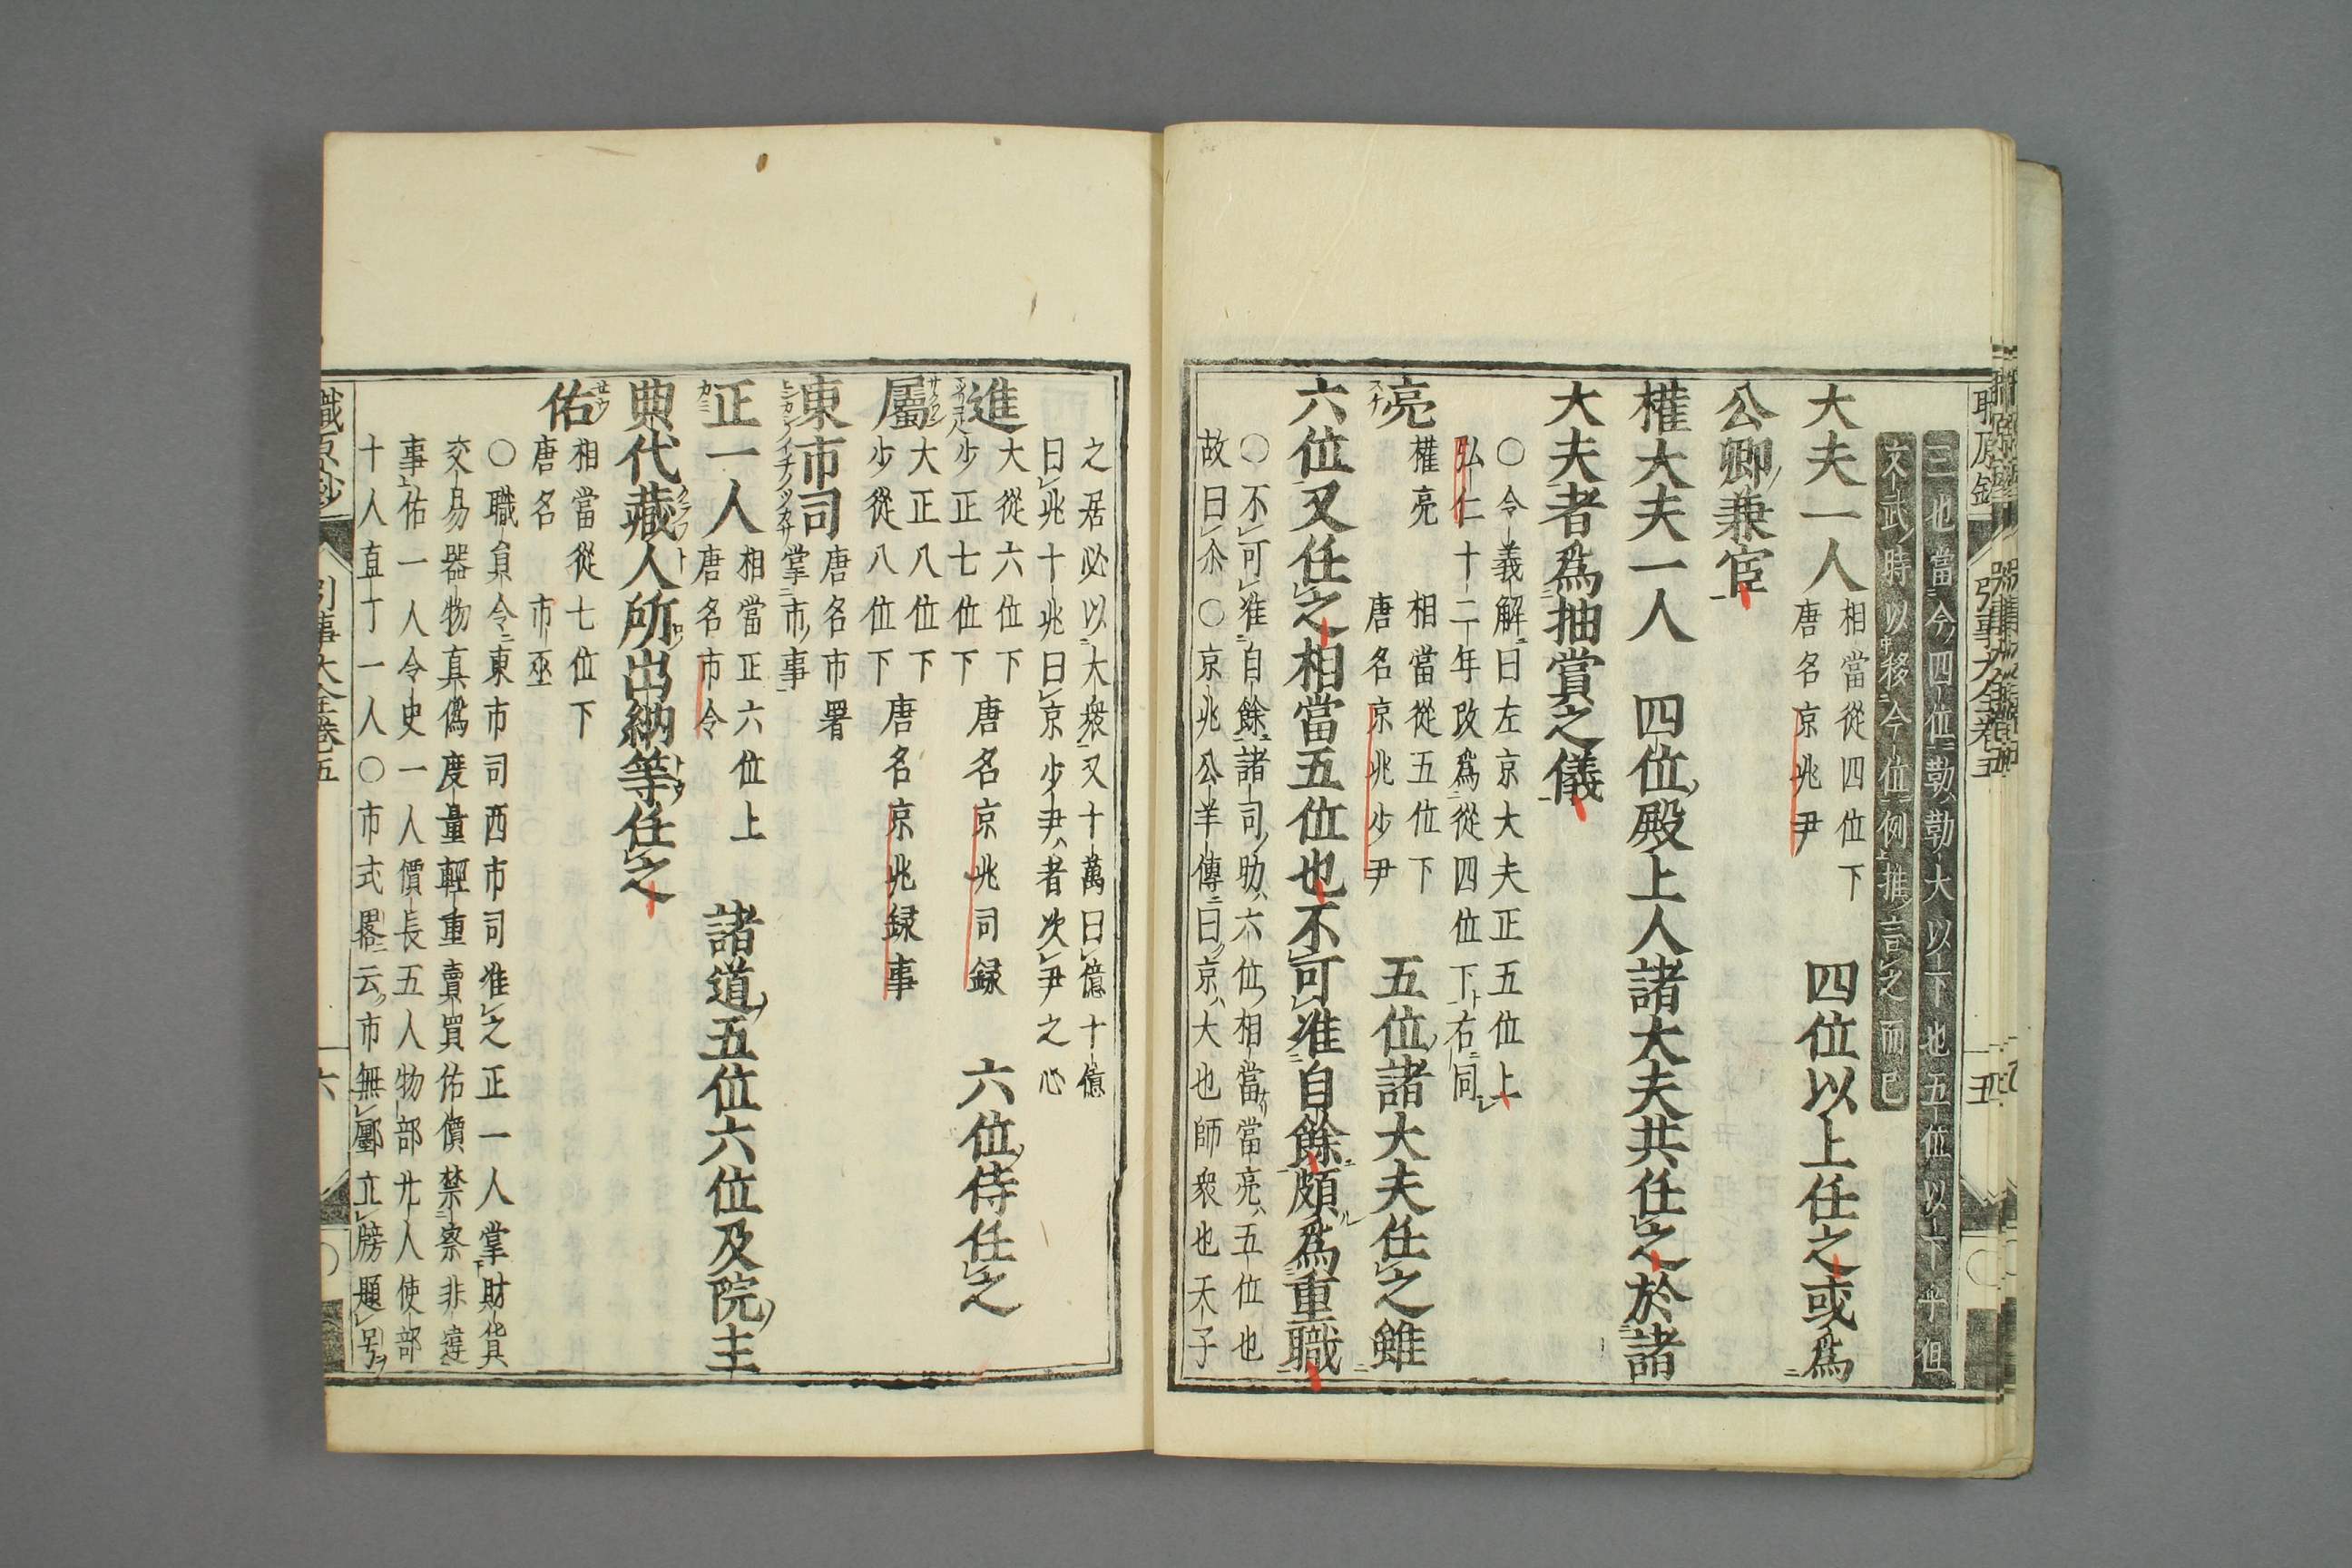 三也當今四位勅勅大以下也五位以下半但
文武時以移今位例推言之而已
大夫一人
相當從四位下
唐名京兆尹
四位以上任之或爲
公卿兼官
權大夫一人　四位殿上人諸大夫共任之於諸
大夫者爲抽賞之儀
〇令義解曰左京大夫正五位上
弘仁十二年改爲從四位下右同
亮
スケ
權亮　相當從五位下
唐名京兆少尹
五位諸大夫任之雖
六位又任之相當五位也不可准自餘頗爲重職
〇不可准自餘諸司助六位相當當亮五位也
故曰尒〇京兆公羊傳曰京大也師衆也天子
之居必以大衆又十萬曰億十億
曰兆十兆曰京少尹者次尹之心
進
大從六位下
少正七位下
唐名京兆司録
六位侍任之
屬
サクワン
大正八位下
少從八位下
唐名京兆録事
東市司
ヒンカシノイチノツカサ
唐名市署
掌市事
正一人
カミ
相當正六位上
唐名市令
諸道五位六位及院主
典代藏人所出納等任之
佑
相當從七位下
唐名　市丞
〇職員令東市司西市司准之正一人掌財貨
交易器物真僞度量輕重賣買估價禁察非違
事佑一人令史一人價長五人物部廿人使部
十人直丁一人〇市式畧云市無鄽立牓題号
職原鈔
引事大全卷五